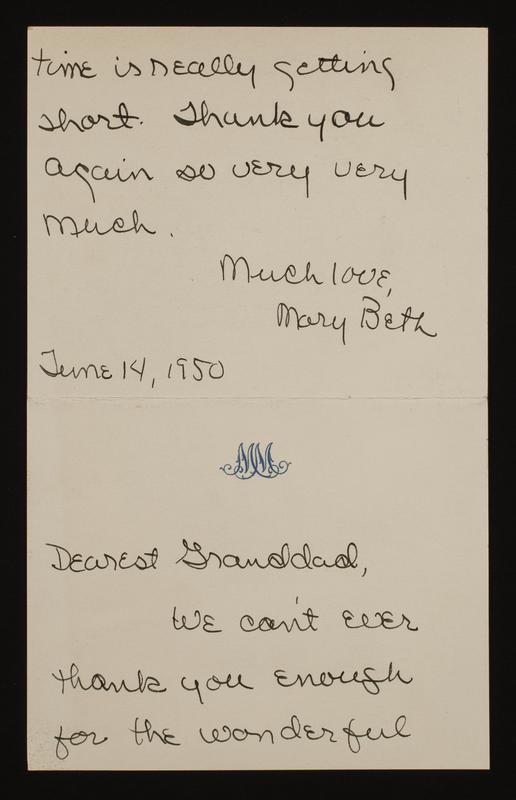 time is really getting
short. Thank you
again so very very
much.
Much love,
Mary Beth
June 14, 1950
Dearest Granddad,
We can't ever
thank you enough
for the wonderful